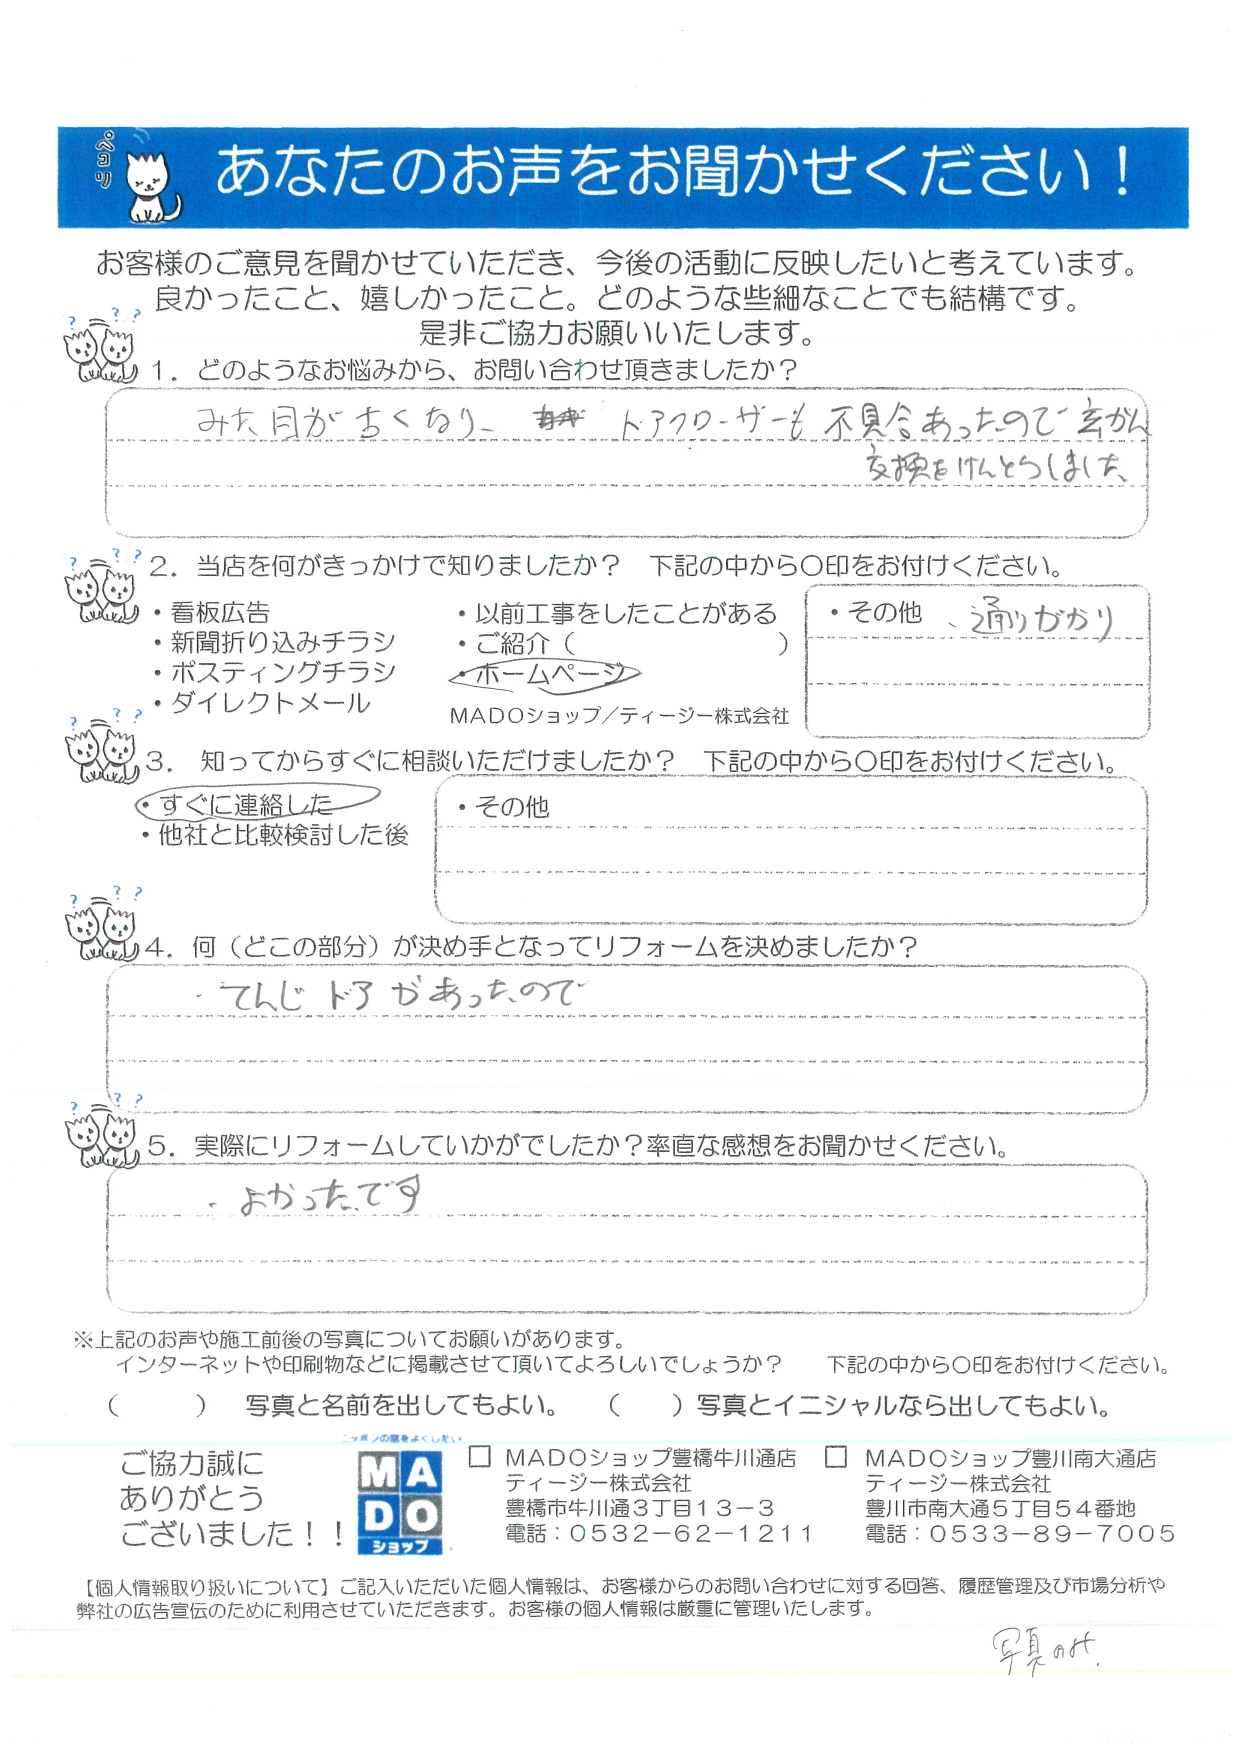 ペコリ
あなたのお声をお聞かせください！
お客様のご意見を聞かせていただき、今後の活動に反映したいと考えています。
良かったこと、嬉しかったこと。どのような些細なことでも結構です。
是非ご協力お願いいたします。
？ ？？
１．どのようなお悩みから、お問い合わせ頂きましたか？
みた目が古くなり、 ドアクローザーも不具合あったので玄かん
交換をけんとうしました
？ ？？
２．当店を何がきっかけで知りましたか？　下記の中から〇印をお付けください。
・看板広告
・新聞折り込みチラシ
・ポスティングチラシ
・ダイレクトメール
・以前工事をしたことがある
・ご紹介（　　　　　　　　）
・ホームページ
ＭＡＤＯショップ／ティージー株式会社
・その他 、通りがかり
？ ？？
３．　知ってからすぐに相談いただけましたか？　下記の中から〇印をお付けください。
・すぐに連絡した
・他社と比較検討した後
・その他
？ ？？
４．何（どこの部分）が決め手となってリフォームを決めましたか？
・てんじドアがあったので
？ ？？
５．実際にリフォームしていかがでしたか？率直な感想をお聞かせください。
・よかったです
※上記のお声や施工前後の写真についてお願いがあります。
インターネットや印刷物などに掲載させて頂いてよろしいでしょうか？　　下記の中から〇印をお付けください。
（　　　）　写真と名前を出してもよい。　（　　）写真とイニシャルなら出してもよい。
ご協力誠に
ありがとう
ございました！！
ニッポンの窓をよくしたい
MADO
ショップ
□ ＭＡＤＯショップ豊橋牛川通店
ティージー株式会社
豊橋市牛川通３丁目１３－３
電話：０５３２－６２－１２１１
□ ＭＡＤＯショップ豊川南大通店
ティージー株式会社
豊川市南大通５丁目５４番地
電話：０５３３－８９－７００５
【個人情報取り扱いについて】ご記入いただいた個人情報は、お客様からのお問い合わせに対する回答、履歴管理及び市場分析や
弊社の広告宣伝のために利用させていただきます。お客様の個人情報は厳重に管理いたします。
写真のみ.